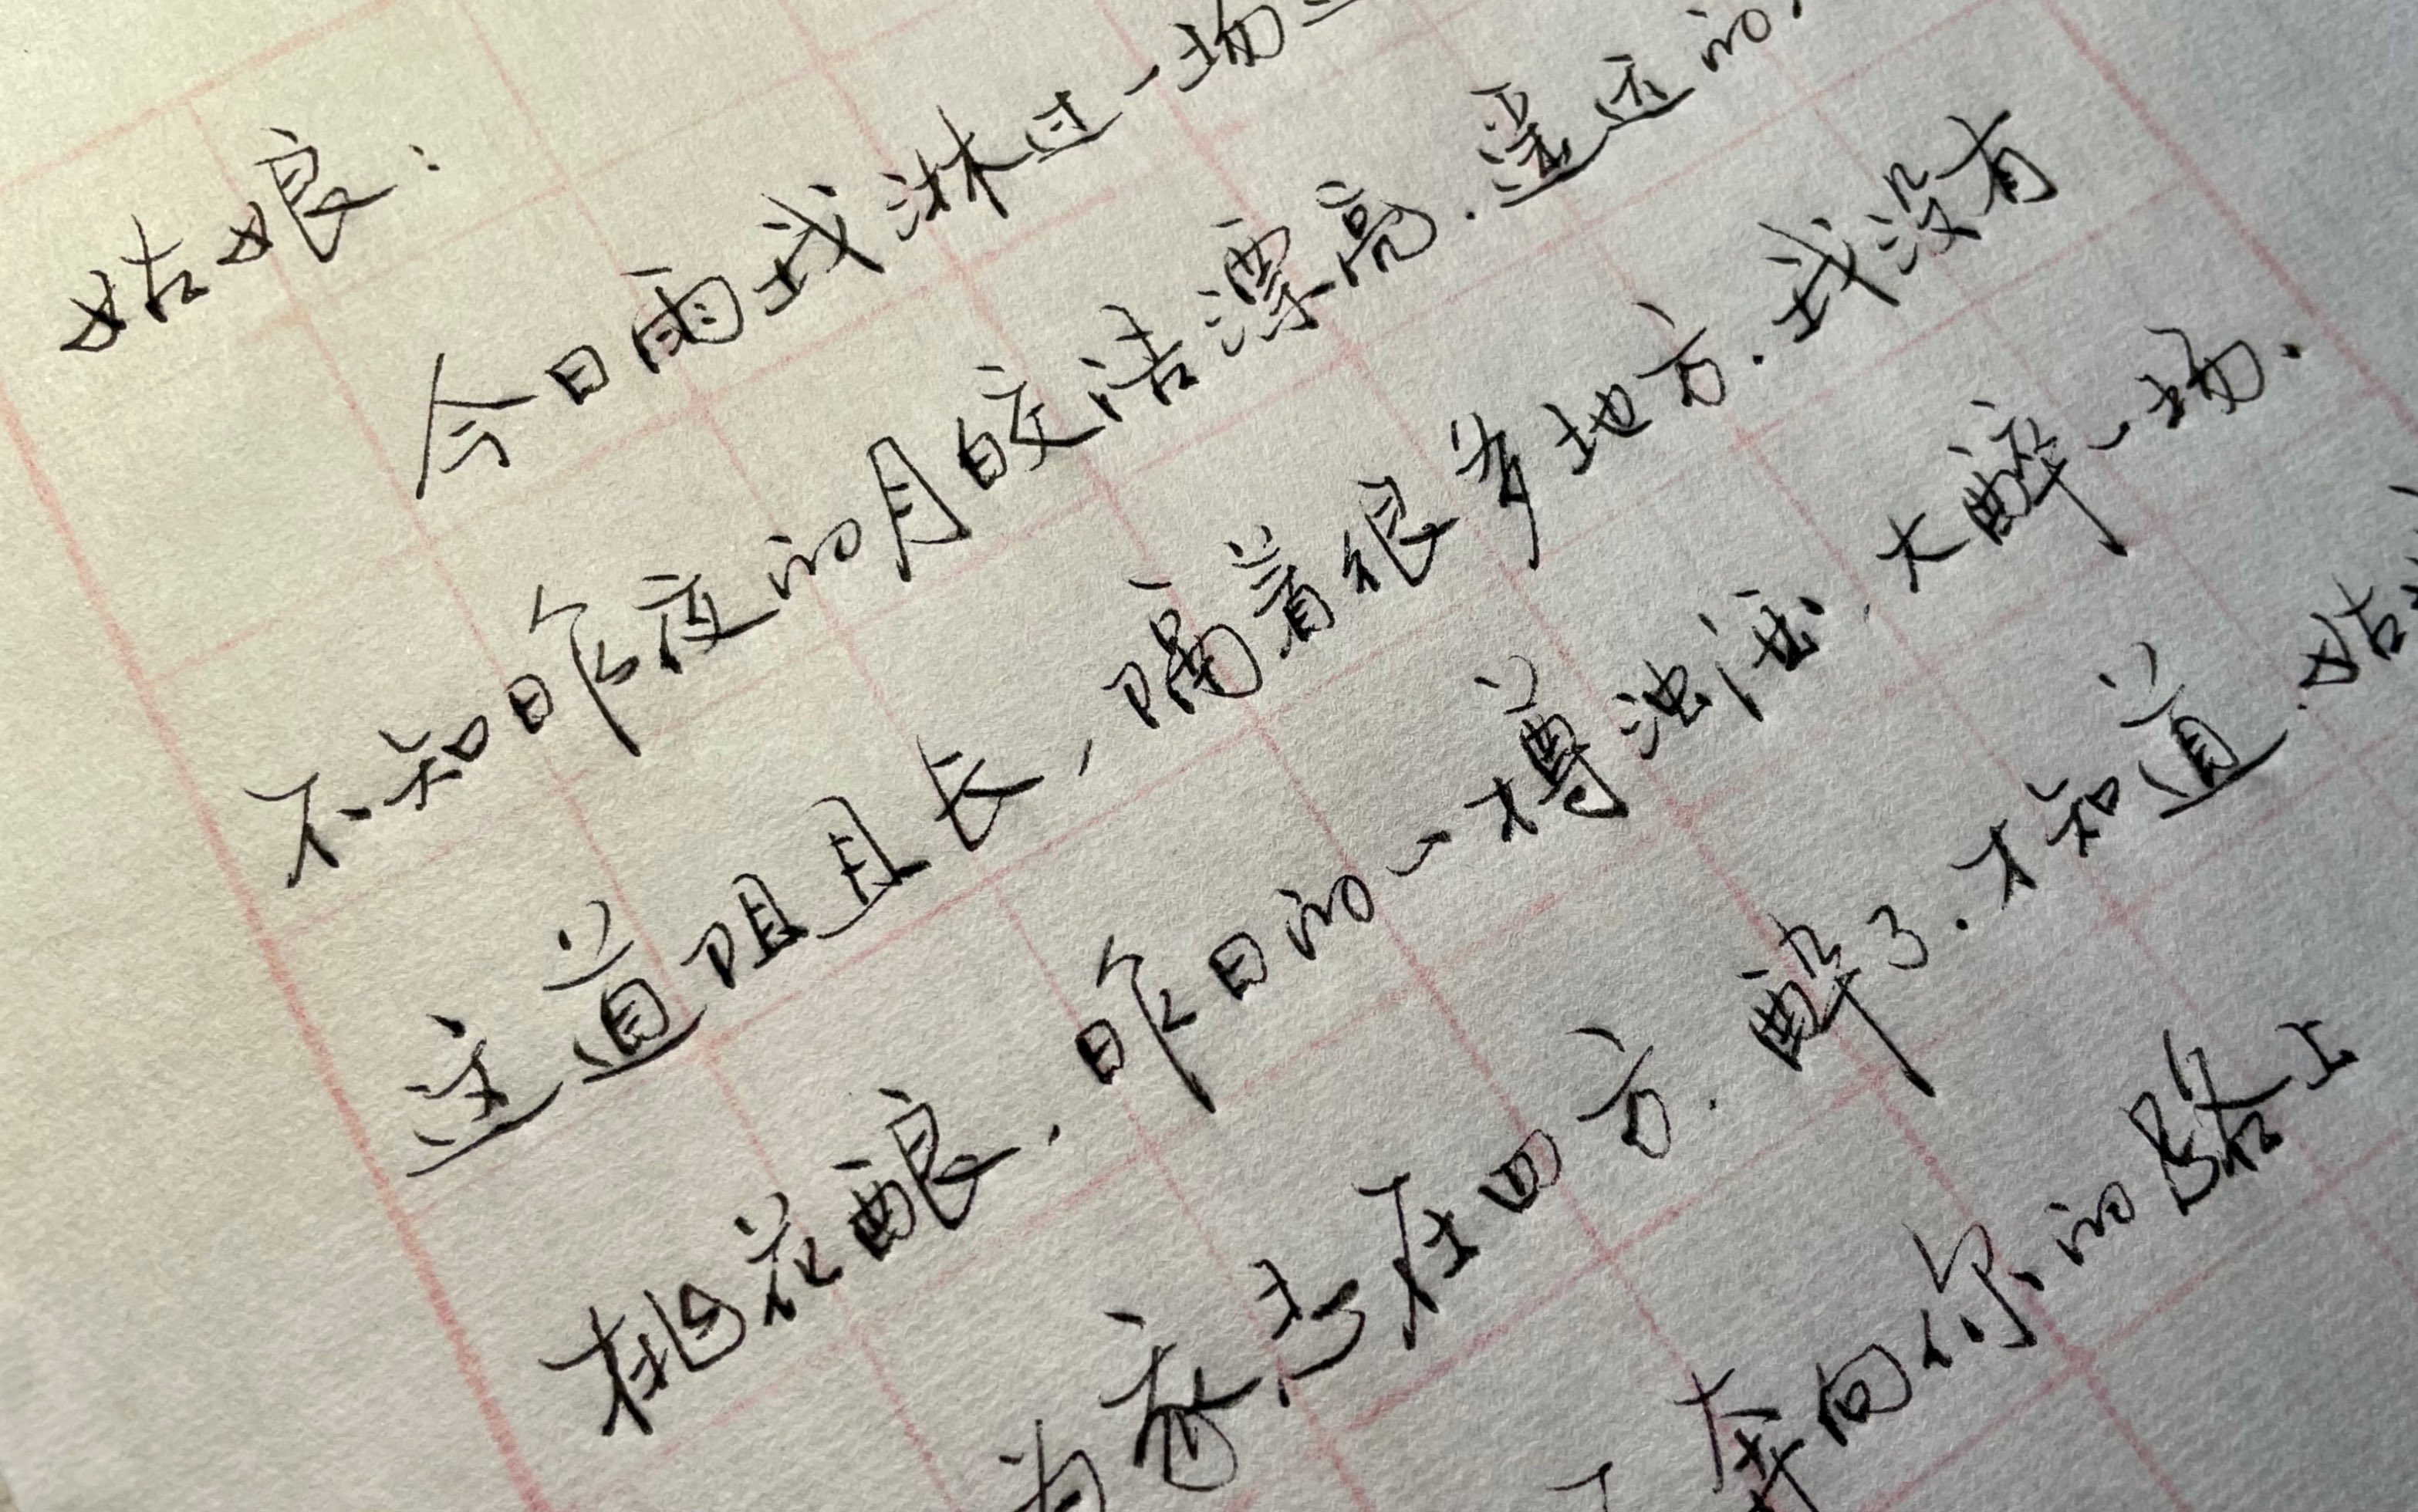 姑娘：
今日雨我淋过一场
不知昨夜的月皎洁漂亮.遥远的
这道阻且长,隔着很多地方.我没有
桃花酿.昨日的一樽浊酒,大醉一场.
在四方.醉了.才知道.姑
奔向你的路上